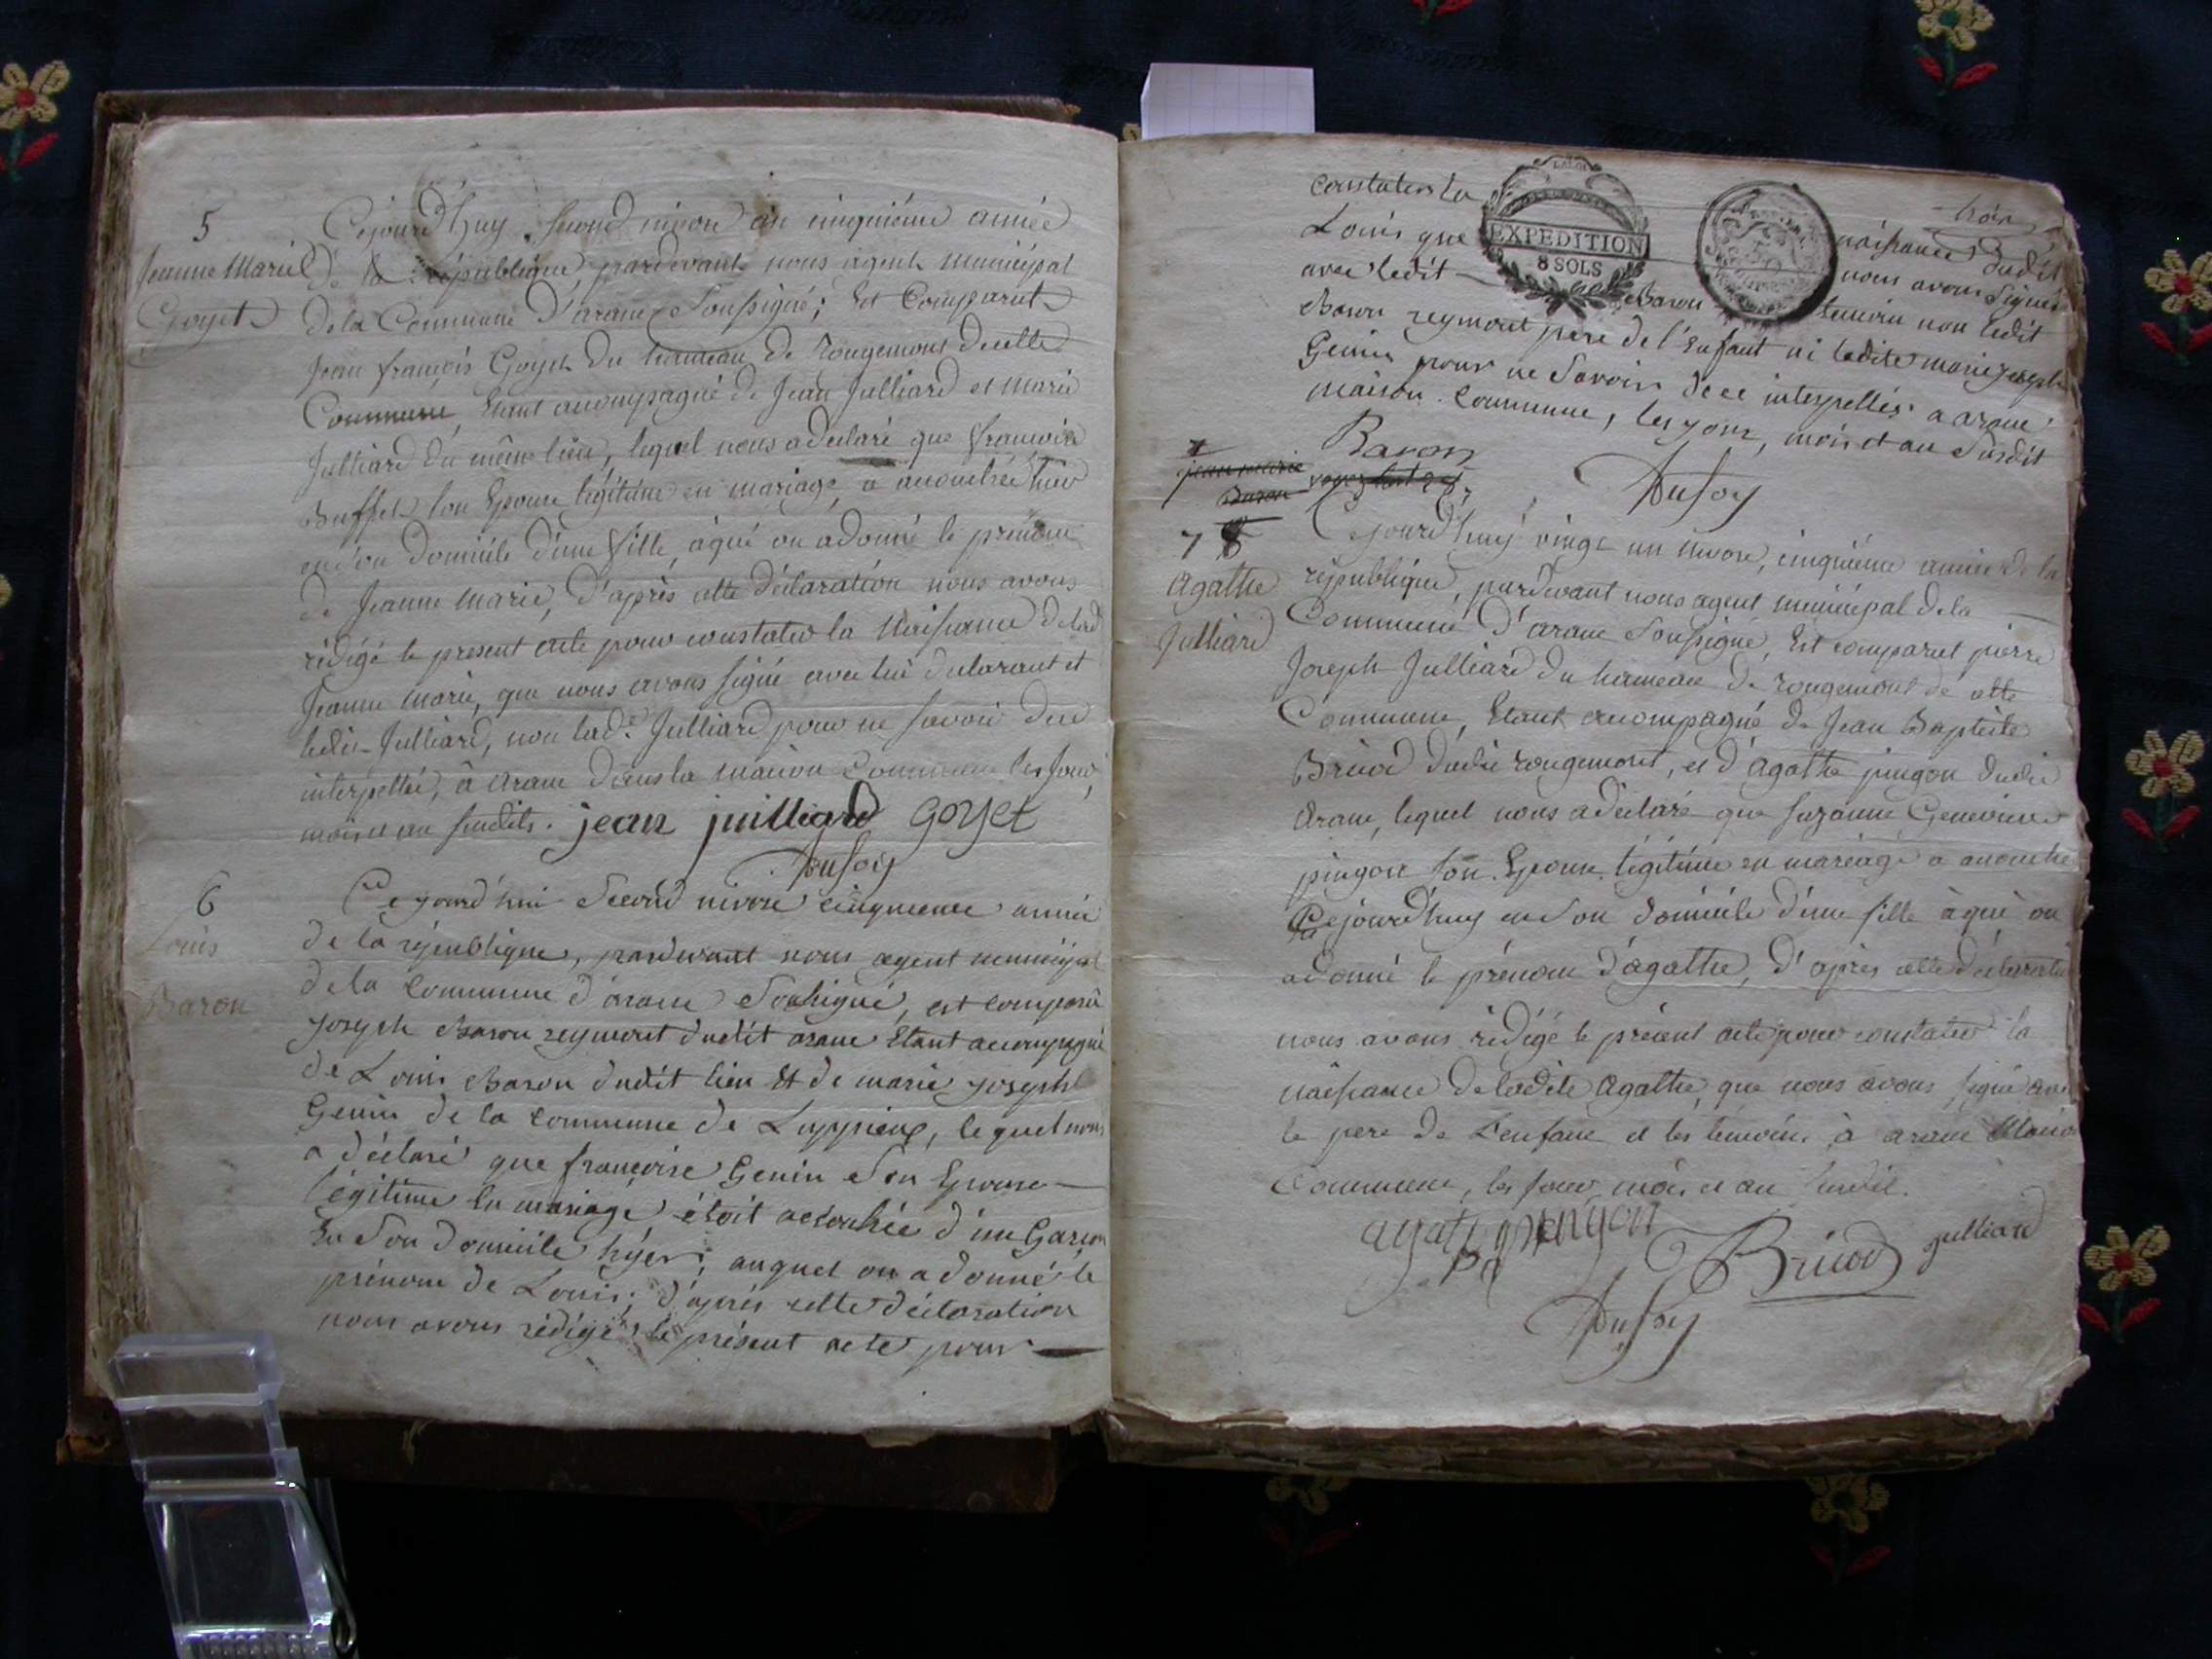 5
Jeanne Marie
Goyet
Cejourd'huy second nivose an cinquième année
de la république pardevant nous agent municipal
de la Commune d'arane soussigné; Est Comparut
jean françois Goyet du hameau de rougemont de cette
Commune, Etant accompagné de Jean Julliard et marie
Julliard du même lieu, lequel nous a declaré que françoise
Buffet son Epouse légitime en mariage, a accouchée hier
en son domicile d'une fille, à qui on a donné le prenom
de Jeanne Marie, d'après cette déclaration nous avons
rédigé le present acte pour constater la Naissance de lad
Jeanne marie, que nous avons signé avec lui declarant et
ledit Julliard, non lad.e Julliard pour ne savoir de ce
interpellée, à arane dans la maison Commune les jour,
mois et an susdits. jean juilliard Goyet
Dufoy
6
Louis
Baron
Cejourd'hui Second nivose cinquieme année
de la république, pardevant nous agent municipal
de la commune d'arane Soussigné, est comparu
joseph Baron reymont dudit arane Etant accompagné
de Louis Baron dudit lieu Et de marie joseph
Genin de la commune de Luppieux, lequel nous
a déclaré que françoise Genin Son Epouse
légitime en mariage étoit accouchée d'un Garson
En Son domicile hyer; auquel on a donné le
prénom de Louis; d'après cette déclaration
nous avons rédigé le présent acte pour
trois
constater la naissance dudit
LA LOI
EXPEDITION
8 SOLS
Louis que nous avons Signé
avec ledit Baron temoin non ledit
Baron reymont pere de l'Enfant ni ladite marie joseph
Genin pour ne Savoir de ce interpellés a arane
maison commune, les jour, mois et an Susdit
Baron
Dufoy
7
jean marie
Baron
7 8
agathe
Julliard
Cejourd'huy vingt un nivose, cinquième année de la
république, pardevant nous agent municipal de la
Commune d'arane soussigné, Est comparut pierre
Joseph Julliard du hameau de rougemont de cette
Commune, Etant accompagné de Jean Baptiste
Brucd dudit rougemont, et d'agathe pingon dudit
arane, lequel nous a déclaré que suzanne Genevieve
pingon son Epouse légitime en mariage a accouché
Cejourd'huy en son domicile d'une fille à qui on
a donné le prénom d'agathe, d'après cette déclaration
nous avons rédigé le présent acte pour constater la
naissance de ladite agathe, que nous avons signé avec
le pere de l'enfant et les témoins, à arane Maison
Commune, les jour mois et an susdit.
agathe pingon
julliard
Dufoy